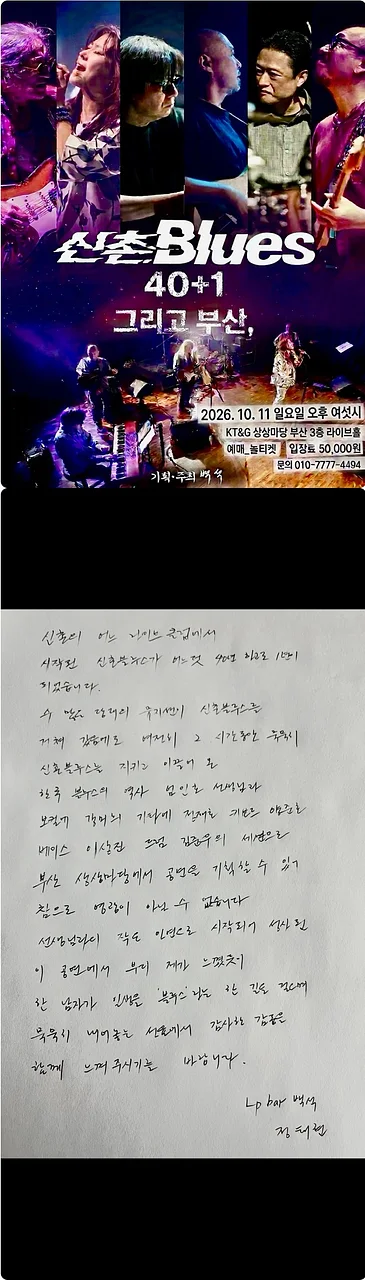 신촌Blues
40+1
그리고 부산,
2026. 10. 11 일요일 오후 여섯시
KT&G 상상마당 부산 3층 라이브홀
예매_놀티켓 입장료 50,000원
문의 010-7777-4494
기획·주최 백석
신촌의 어느 라이브 클럽에서
시작된 신촌블루스가 어느덧 40년 하고도 1년이
되었습니다.
수 많은 당대의 뮤지션이 신촌블루스를
거쳐 갔음에도 여전히 그 시간동안 묵묵히
신촌블루스를 지키고 이끌어 온
한국 블루스의 역사 엄인호 선생님과
보컬에 강머시 기타에 전재로 키보드 안준호
베이스 이상진 드럼 김준우의 세션으로
부산 상상마당에서 공연을 기획할 수 있어
참으로 영광이 아닐 수 없습니다
선생님과의 작은 인연으로 시작되어 성사된
이 공연에서 부디 제가 느꼈듯이
한 남자가 인생을 '블루스'라는 한 길을 걸으며
묵묵히 내어놓는 선율에서 감사한 감동을
함께 느껴 주시기를 바랍니다.
Lp bar 백석
정태현